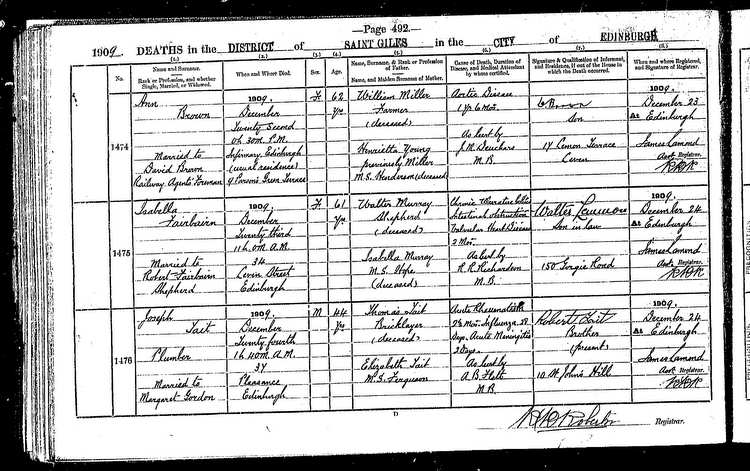 —Page 492.—
1909. DEATHS in the DISTRICT of SAINT GILES in the CITY of EDINBURGH
(1.) (2.) (3.) (4.) (5.) (6.) (7.) (8.)
No.
Name and Surname.
Rank or Profession, and whether Single, Married, or Widowed.
When and Where Died.
Sex.
Age.
Name, Surname, & Rank or Profession of Father.
Name, and Maiden Surname of Mother.
Cause of Death, Duration of Disease, and Medical Attendant by whom certified.
Signature & Qualification of Informant, and Residence, if out of the House in which the Death occurred.
When and where Registered, and Signature of Registrar.
1474
Ann
Brown
Married to
David Brown
Railway Agents' Foreman
1909.
December
Twenty Second
0h 30m P.M.
Infirmary Edinburgh
(usual residence)
9 Parsons Green Terrace
F.
62
Yrs
William Miller
Farmer
(deceased)
Henrietta Young
previously Miller
M.S. Henderson (deceased)
Aortic Disease
1 yr 6 mos.
As cert by
M.B.
Brown
Son
17 Terrace
Leven
1909.
December 23
At Edinburgh
James Lamond
Asst Registrar.
1475
Isabella
Fairbairn
Married to
Robert Fairbairn
Shepherd
1909.
December
Twenty third
11h 0m A.M.
34
Levin Street
Edinburgh
F.
61
Yrs
Walter Murray
Shepherd
(deceased)
Isabella Murray
M.S. Hope
(deceased)
Chronic
Intestinal obstruction
Valvular Heart Disease
2 Mos.
As cert by
R. R. Richardson
M.B.
Walter
Son in law
150 Gorgie Road
1909.
December 24
At Edinburgh
James Lamond
Asst Registrar.
1476
Joseph
Tait
Plumber
Married to
Margaret Gordon
1909.
December
Twenty fourth
1h 40m A.M.
37
Pleasance
Edinburgh
M
44
Yrs
Thomas Tait
Bricklayer
(deceased)
Elizabeth Tait
M.S. Ferguson
Acute Rheumatism
Influenza
Days. Acute Meningitis
2 Days.
As cert by
A. B. Flett
M.B.
Robert Tait
Brother
(present)
10 St John's Hill
1909.
December 24
At Edinburgh
James Lamond
Asst Registrar.
Registrar.